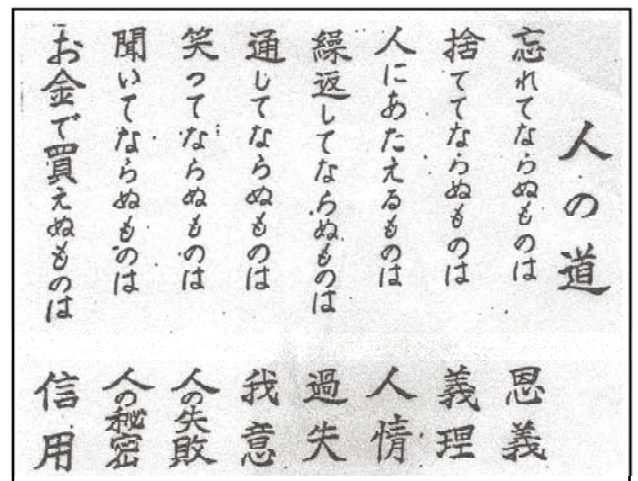 人の道
忘れてならぬものは 恩義
捨ててならぬものは 義理
人にあたえるものは 人情
繰返してならぬものは 過失
通してならぬものは 我意
笑つてならぬものは 人の失敗
聞いてならぬものは 人の秘密
お金で買えぬものは 信用